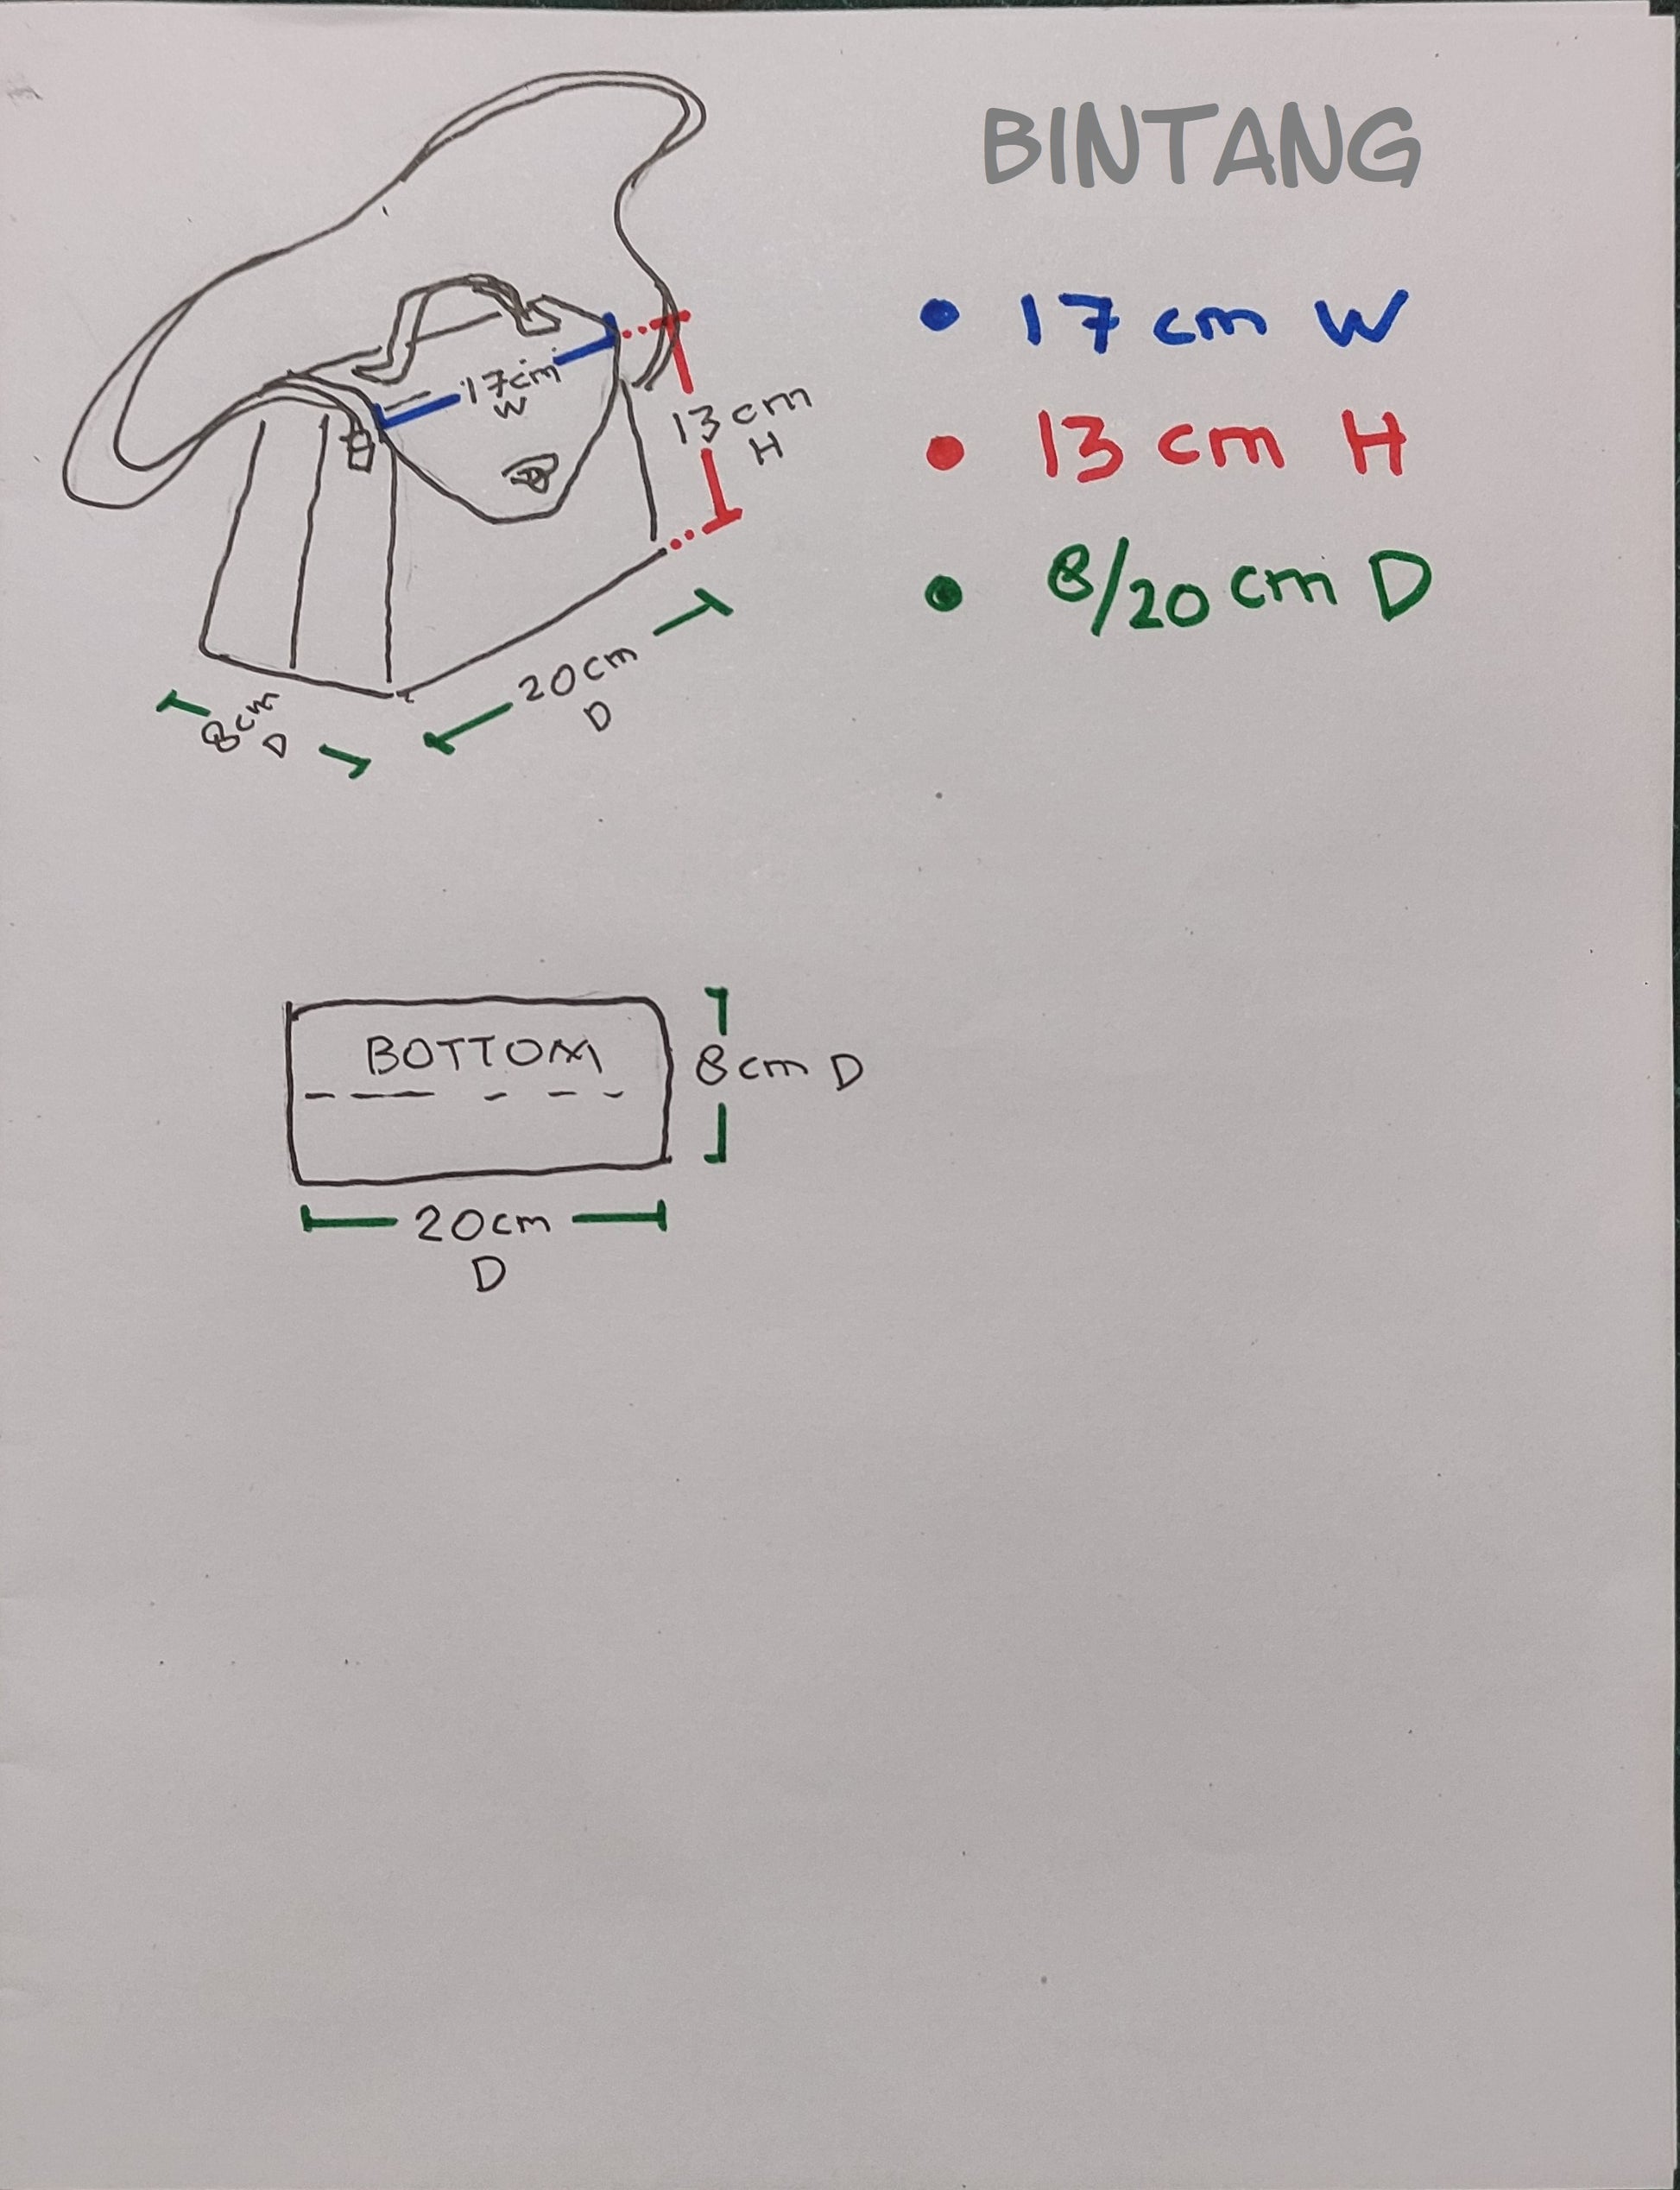 BINTANG
17cm
W
13cm
H
20cm
D
8cm
D
• 17 cm W
• 13 cm H
• 8/20 cm D
BOTTOM
8cm D
20cm
D